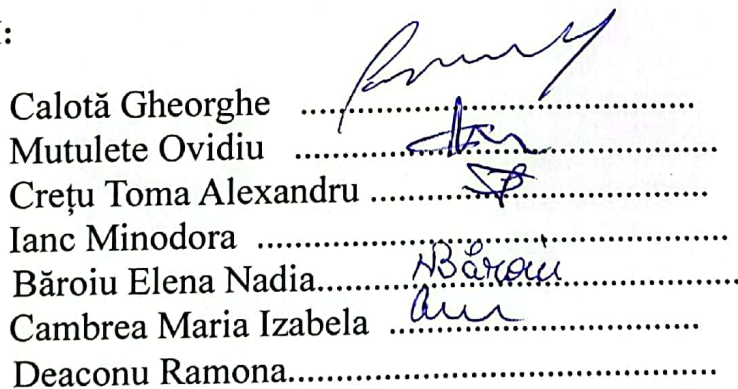 :
Calotă Gheorghe ................................................
Mutulete Ovidiu ................................................
Crețu Toma Alexandru ........................................
Ianc Minodora ....................................................
Băroiu Elena Nadia........NBăroiu........................
Cambrea Maria Izabela ......................................
Deaconu Ramona................................................